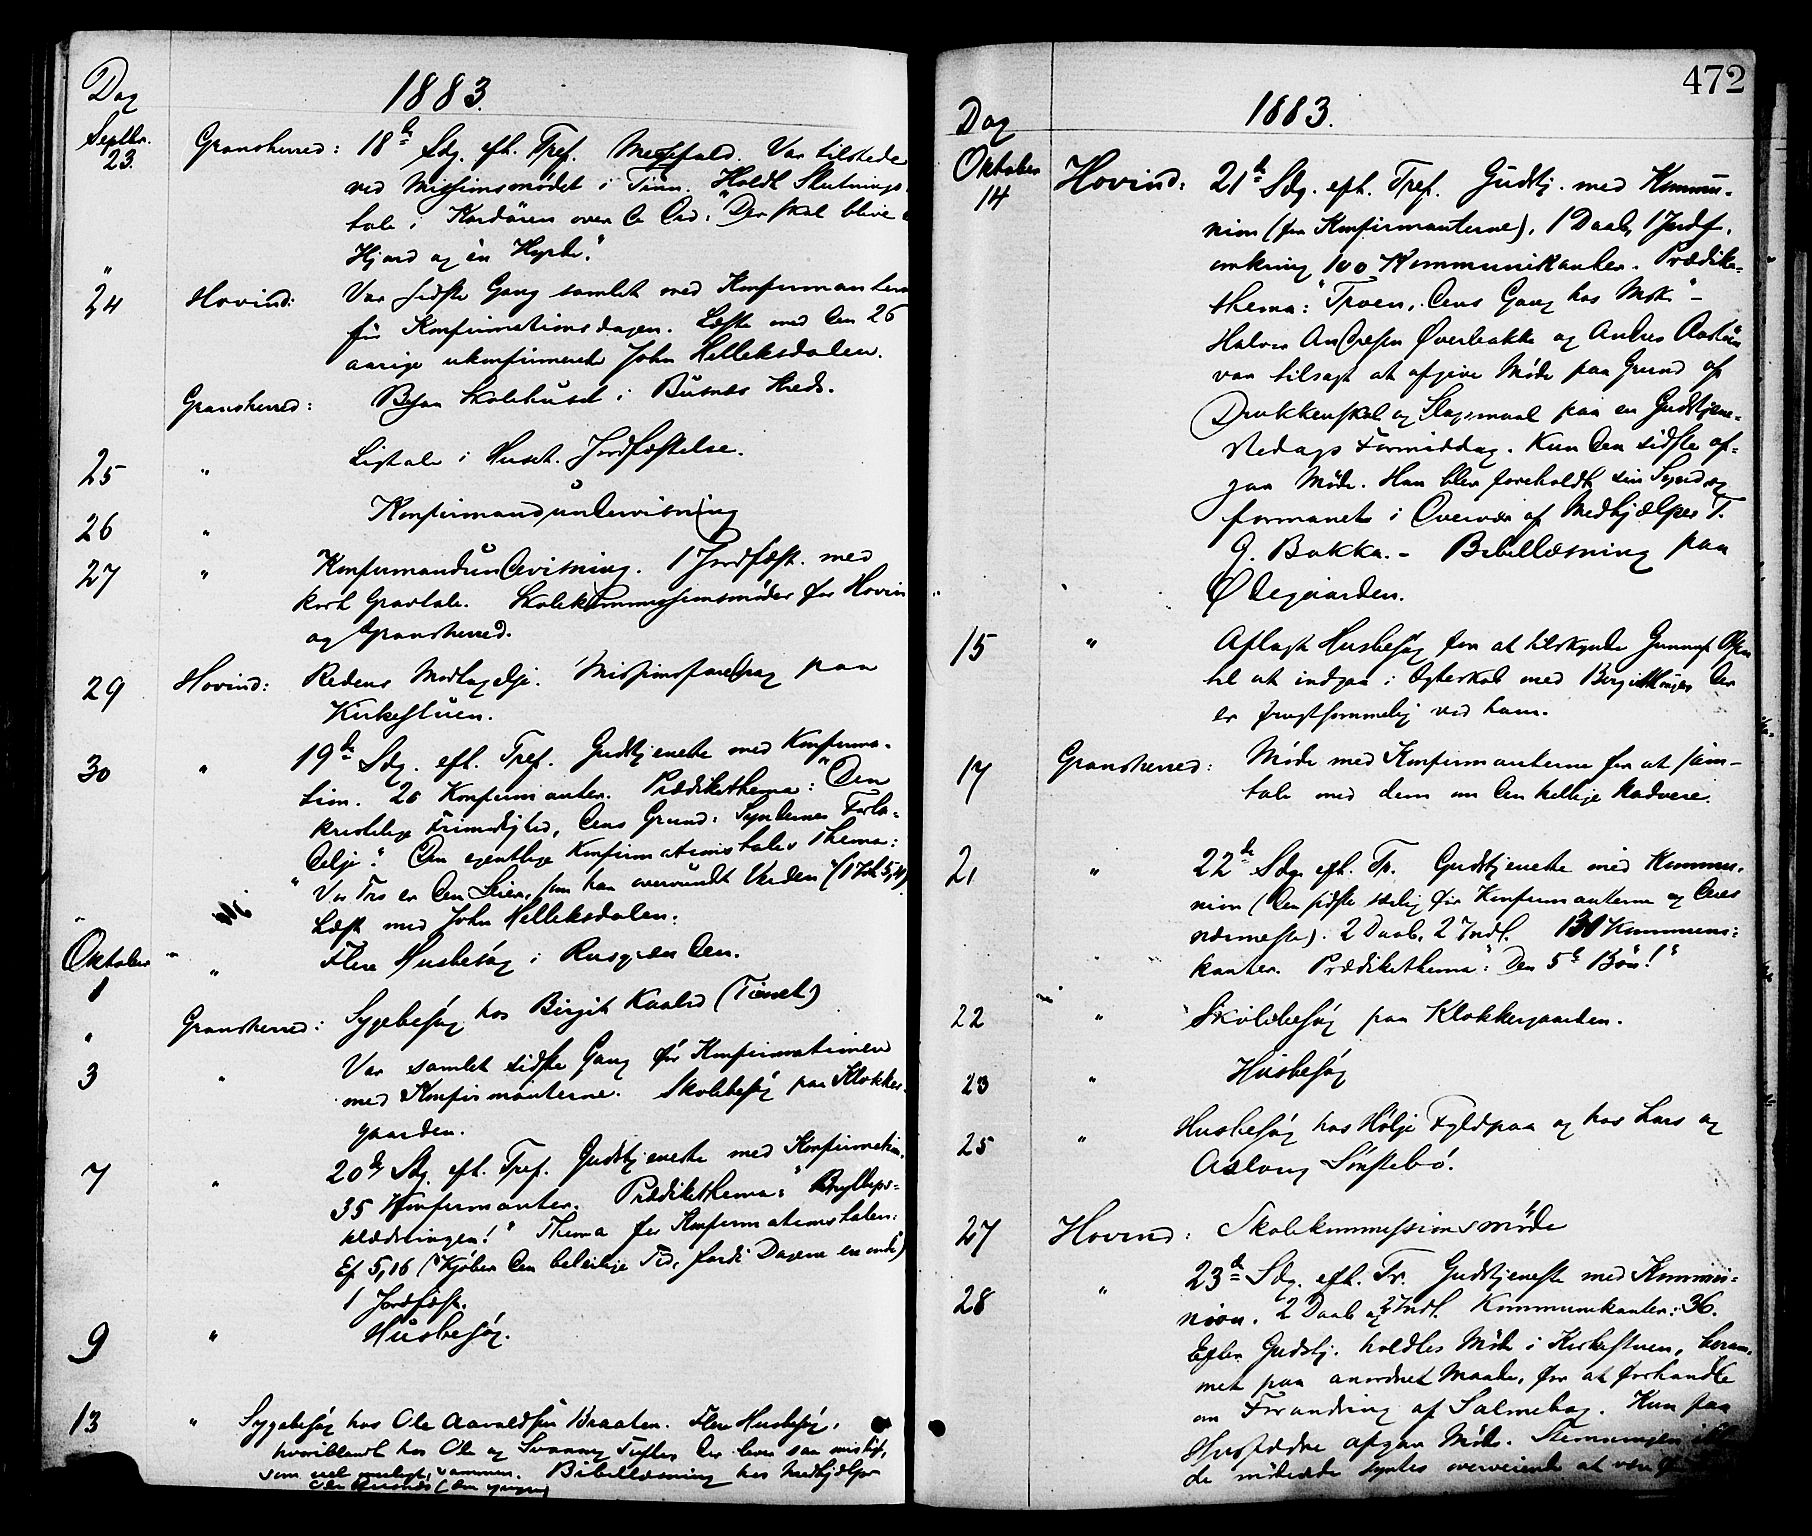 Dag
1883.
Septbr.
23.
Gransherred: 18de Sdg. eft. Tref. Messefald. Var tilstede
ved Missionsmødet i Tinn. Holdt Slutnings-
tale i Kordøren over de Ord: "Der skal blive
Hjord og en Hyrde."
" 24 Hovind: Var sidste Gang samlet med Konfirmanterne
før Konfirmationsdagen. Læste med den 26
aarige ukonfirmerede John Helleksdalen.
Gransherred: Besaa Skolehuset i Busnes Kreds.
25 " Ligtale i Huset. Jordfæstelse.
26 " Konfirmandundervisning
27 " Konfirmandundervisning. 1 Jordfæst. med
kort Gravtale. Skolekommissionsmøder for Hovin
og Gransherred.
29 Hovind: Redens Modtagelse. Missionsforedrag paa
Kirkestuen.
30 " 19de Sdg. eft. Tref. Gudstjeneste med Konfirma-
tion. 26 Konfirmanter. Prædikethema: "Den
kristelige Frimodighed, dens Grund: Syndernes Forla-
delse." Den egentlige Konfirmationstales Thema:
"Vor Tro er den Seier, som har overvundet Verden" (1 Joh 5,4)
Læst med John Helleksdalen.
Oktober
1 " Flere Husbesøg i Rusgrenden.
" Gransherred: Sygebesøg hos Birgit Kaalid (Tinnet)
3 " Var samlet sidste Gang før Konfirmationen
med Konfirmanterne. Skolebesøg paa Klokker-
gaarden.
7 " 20de Sdg. eft. Tref. Gudstjeneste med Konfirmation.
35 Konfirmanter. Prædikethema: "Bryllups-
klædningen!" Thema for Konfirmationstalen:
Ef 5,16 ("Kjøber den beleilige Tid, fordi Dagene ere onde")
1 Jordfæst.
9 " Husbesøg.
13 " Sygebesøg hos Ole Aavaldsen Braaten. Flere Husbesøg,
hvoriblandt hos Ole og Svanaug Tufte, der lever saa misligt,
som vel muligt, sammen. Bibellæsning hos Medhjælper
Ole Busnes (den yngre)
472
Dag
1883.
Oktober
14 Hovind: 21de Sdg. eft. Tref. Gudstj. med Kommu-
nion (for Konfirmanterne), 1 Daab, 1 Jordf.
omkring 100 Kommunikanter. Prædike-
thema: "Troen, dens Gang hos Msk" –
Halvor Andresen Øverbakke og Andres
var tilsagt at afgive Møde paa Grund af
Drukkenskab og Slagsmaal paa en Gudstjene-
stedags Formiddag. Kun den sidste af-
gav Møde. Han blev foreholdt sin Synd og
formanet i Overvær af Medhjælper T.
G. Bakka. – Bibellæsning paa
Ødegaarden.
15 " Aflagt Husbesøg for at tilskynde Gunnuf
til at indgaa i Egteskab med Birgit der
er frugtsommelig ved ham.
17 Gransherred: Møde med Konfirmanterne for at sam-
tale med dem om den hellige Nadvere.
21 " 22de Sdg. eft. Tr. Gudstjeneste med Kommu-
nion (den sidste særlig for Konfirmanterne og deres
nærmeste). 2 Daab, 2 Indl. 131 Kommuni-
kanter. Prædikethema: "Den 5te Bøn!"
22 " Skolebesøg paa Klokkergaarden.
23 " Husbesøg
25 " Husbesøg hos Hølje Fyldpaa og hos Lars og
Aslaug Sønstebø.
27 Hovind: Skolekommissionsmøde
28 " 23de Sdg. eft. Tr. Gudstjeneste med Kommu-
nion. 2 Daab og 2 Indl. Kommunikanter: 36.
Efter Gudstj. holdtes Møde i Kirkestuen, beram-
met paa anordnet Maade, for at forhandle
om Forandring af Salmebog. Kun faa
Husfædre afgav Møde. Stemningen
de mødende syntes overveiende at være